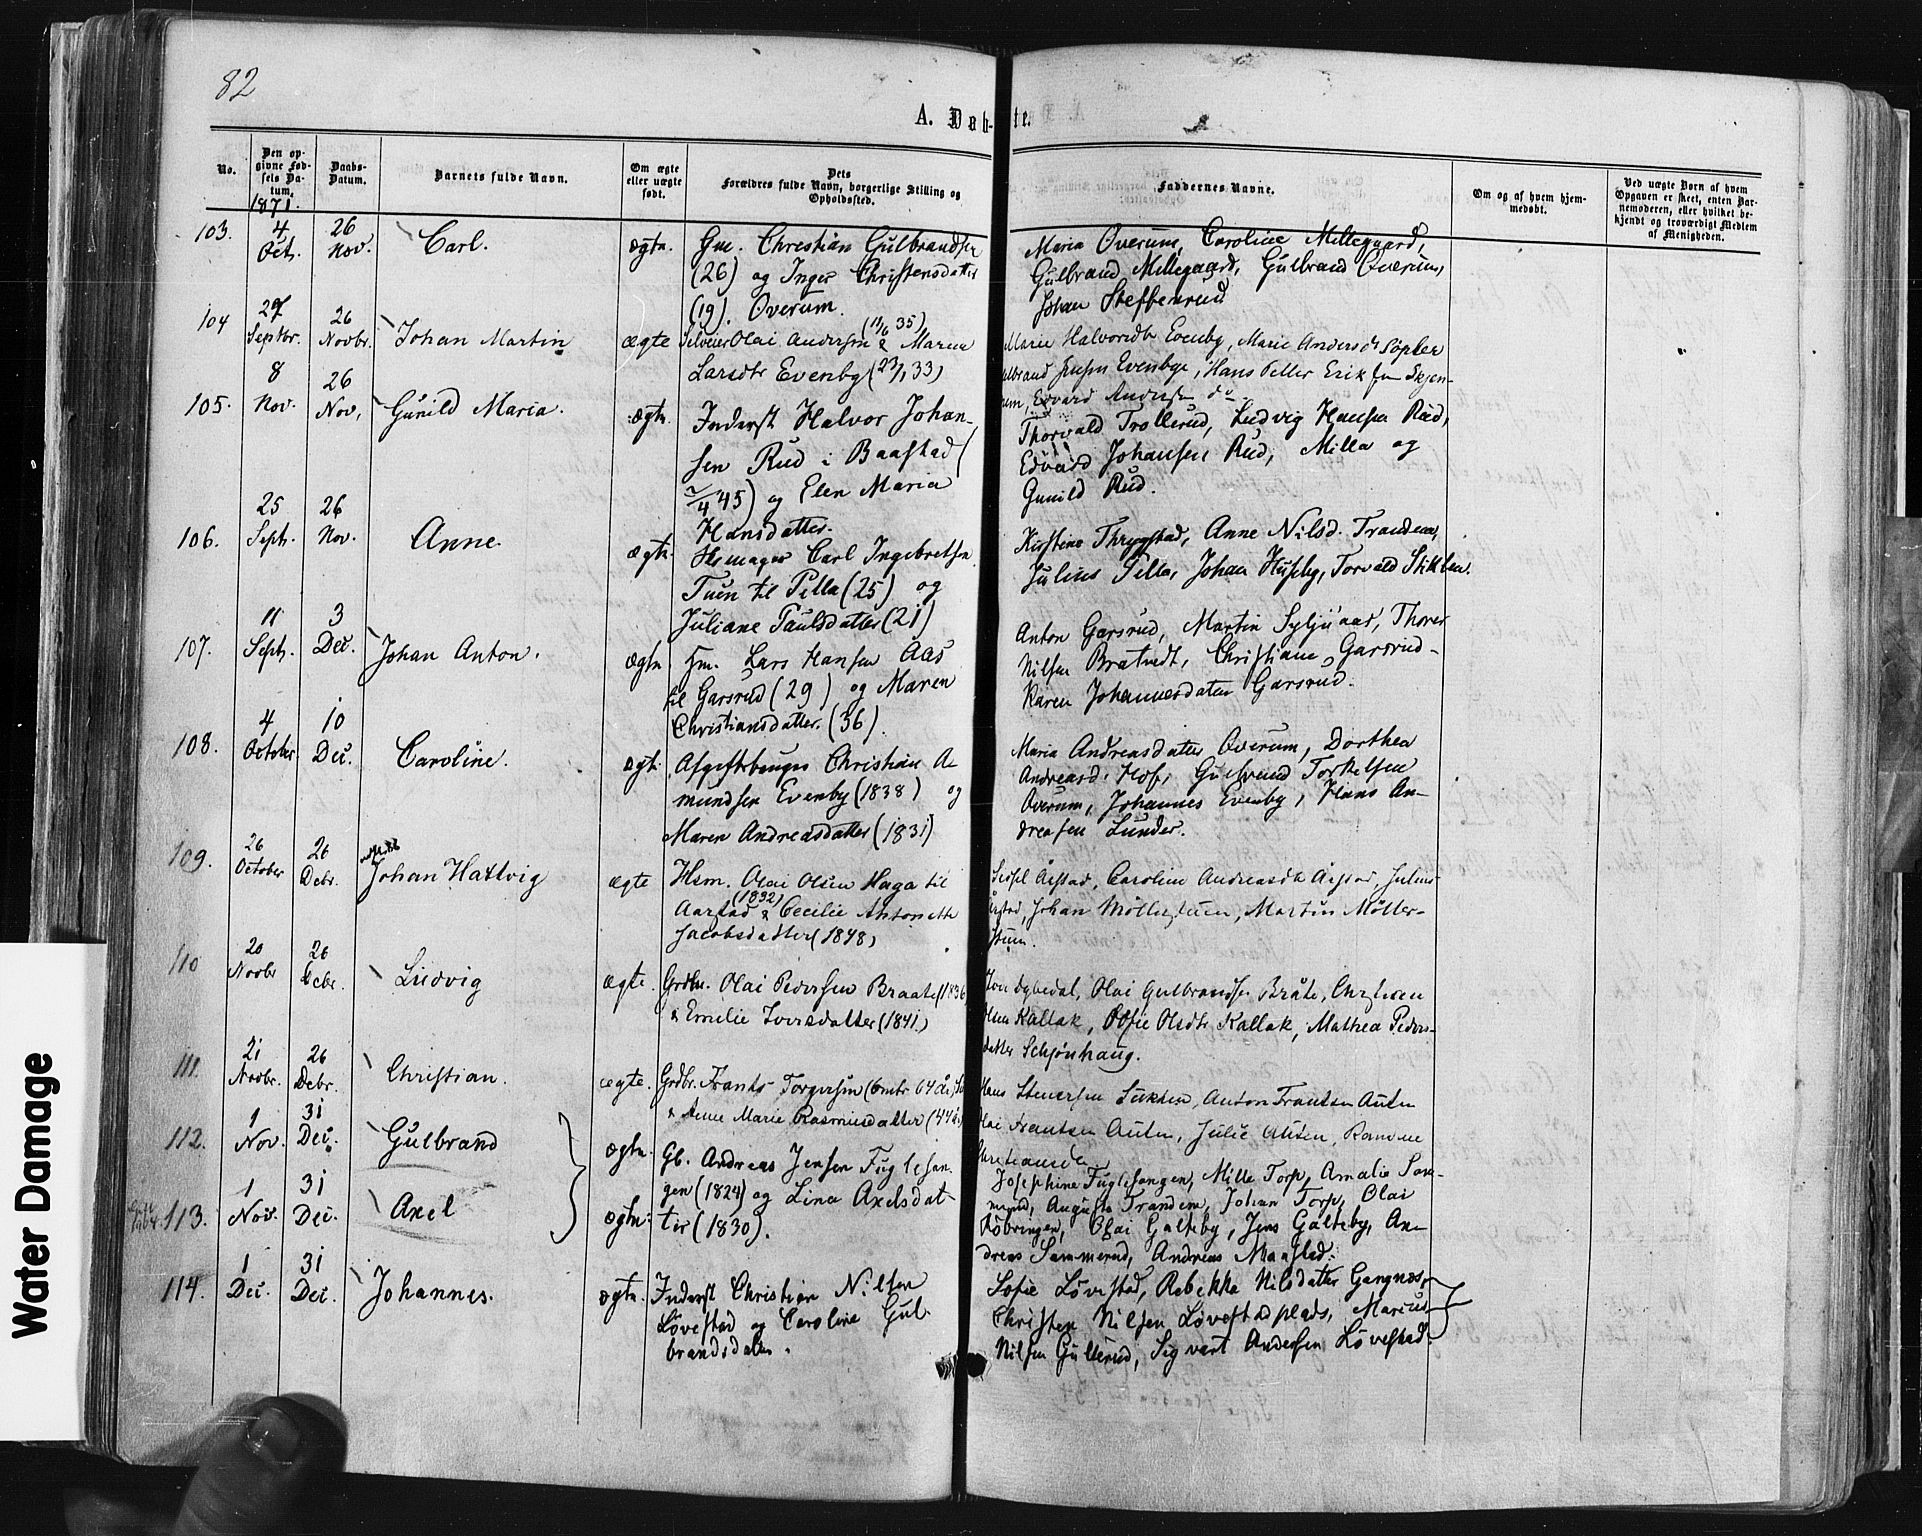 82
A. Dåb-
te.
No.
Den op-
givne Fød-
sels Da-
tum.
1871.
Daabs-
Datum.
Barnets fulde Navn.
Om ægte
eller uægte
født.
Dets
Forældres fulde Navn, borgerlige Stilling og
Opholdssted.
Faddernes Navne.
Om og af hvem hjem-
medøbt.
Ved uægte Børn af hvem
Opgaven er skeet, enten Bar-
nemoderen, eller hvilket be-
kjendt og troværdigt Medlem
af Menigheden.
103.
4
Oct.
26
Nov.
Carl.
ægte.
Gm. Christian Gulbrandsen
(26) og Inger Christensdatter
(19). Overum.
Maria Overum, Caroline Millegaard,
Gulbrand Millegaard, Gulbrand Overum,
Johan Steffensrud
104
27
Septbr.
26
Novbr.
Johan Martin
ægte
Selveier Olai Andersen (11/6 35) & Maren
Larsdtr Evenby (23/1 33)
Marie Halvorsdtr Evenby, Marie Andersdtr Søpler
Jensen Evenbye, Hans Peller Erik Skjen-
rum, Edvard Andersen do
105.
8
Nov.
26
Nov.
Gunild Maria.
ægte.
Inderst Halvor Johan-
sen Rud i Baastad (
7/4 45) og Elen Maria
Hansdatter.
Thorvald Trollerud, Ludvig Hansen Rud,
Edvard Johansen Rud, Milla og
Gunild Rud.
106.
25
Sept.
26
Nov.
Anne.
ægte.
Husmager Carl Ingebretsen
Tuen til Pella (25) og
Juliane Paulsdatter (21)
Kirstine Thrygstad, Anne Nilsd. Trandem,
Julius Pella, Johan Huseby, Torvald Stikben.
107.
11
Sept.
3
Dec.
Johan Anton.
ægte
Hm. Lars Hansen Aas
til Garsrud (29) og Maren
Christiansdatter. (36).
Anton Garsrud, Martin Syljuaas, Thorer
Nilsen Bratvedt, Christiane Garsrud-
Karen Johannesdaten Garsrud.
108.
4
October
10
Dec.
Caroline.
ægt.
Afgiftsbruger Christian A-
mundsen Evenby (1838) og
Maren Andreasdatter (1831)
Maria Andreasdatter Overum, Dorthea
Andreasd. Hof, Gulbrand Torkelsen
Overum, Johannes Evenby, Hans An-
dreasen Lunder.
109.
26
October
26
Debr.
Johan Hartvig
ægte
Hsm. Olai Olsen Haga til
Aarstad (1832) & Cecilie Antonette
Jacobsdatter (1848)
Sidsel Årstad, Caroline Andreasdtr Årstad, Julius
Årstad, Johan Møllerstuen, Martin Møller-
stuen.
110
20
Novbr
26
Debr.
Ludvig
ægte.
Grdbr. Olai Pedersen Braate (1836)
& Emilie Iversdatter (1841)
Iver Dybedal, Olai Gulbrandsen Bråte, Christian
Olsen Kallak, Sofie Olsdtr Kallak, Mathea Peders-
datter Schjønhaug.
111.
21
Novbr.
26
Debr.
Christian.
ægte.
Grdbr. Frants Torgersen (omtr 64 år)
& Anne Marie Rasmusdatter (44 år)
Hans Stenersen Sukken, Anton Frantsen Auten
Olai Frantsen Auten, Julie Auten, Ramine
Christiansdr
112.
1
Nov.
31
Dec.
Gulbrand
ægte.
Gb. Andreas Jensen Fuglesan-
gen (1824) og Lina Axelsdat-
ter (1830).
Josephine Fuglesangen, Mille Torp, Amalie Sam-
merud, Augusta Trandem, Johan Torp, Olai
Købringen, Olai Galteby, Jens Galteby, An-
dreas Sammerud, Andreas Maastad.
113.
1
Nov.
31
Dec.
Axel
ægte.
114.
1
Dec.
31
Dec.
Johannes.
ægte.
Inderst Christian Nilsen
Løvestad og Caroline Gul-
brandsdatter.
Sofie Løvestad, Rebekka Nilsdatter Gangnæs,
Christen Nilsen Løvestadplads, Marius
Nilsen Gullerud, Sigvart Andersen Løvestad.
Water Damage